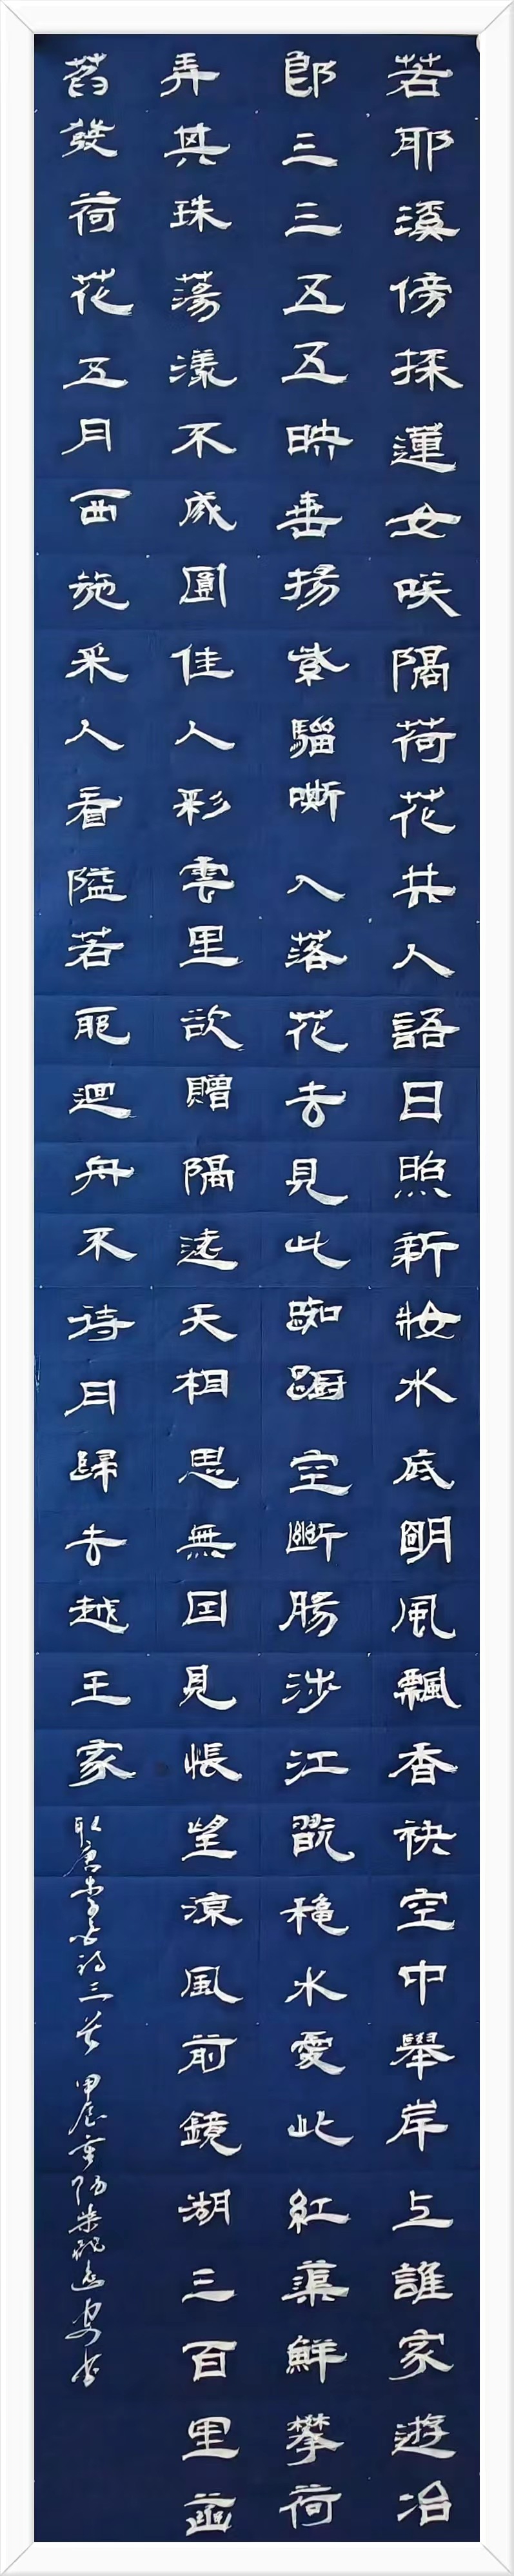 若耶溪傍採蓮女咲隔荷花共人語日照新妝水底明風飄香袂空中舉岸上誰家遊冶
郎三三五五映垂揚紫騮嘶入落花去見此踟躕空斷腸涉江翫穐水愛此紅蕖鮮攀荷
弄其珠蕩漾不成圓佳人彩雲里欲贈隔遠天相思無因見悵望涼風前鏡湖三百里菡
萏發荷花五月西施采人看隘若耶迴舟不待月歸去越王家
唐李白詩三首 甲辰重陽